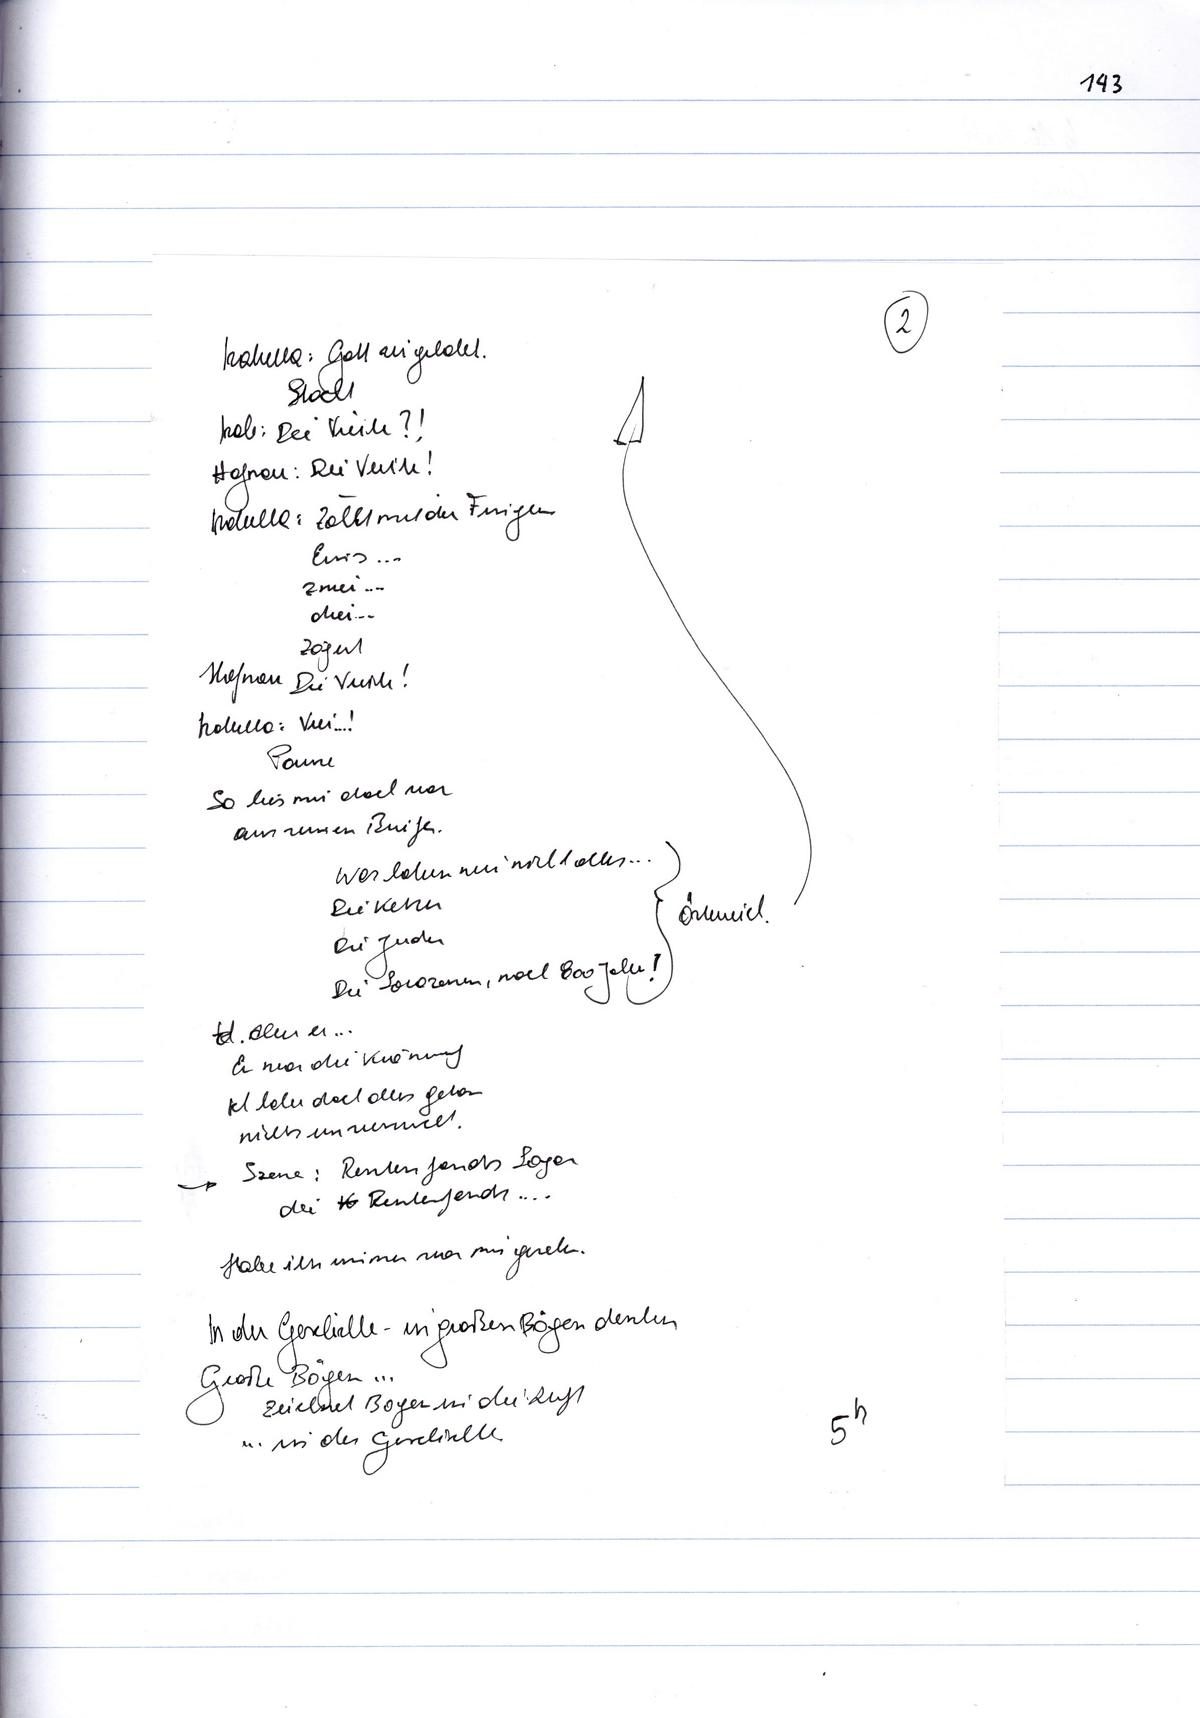 143
2
Isabella: Gott ausgeredet.
Stockt
Isab: Die Vierte?!
Hofnarr: Die Vierte!
Isabella: Zählt mit den Fingern
Eins...
zwei...
drei...
zögert
Hofnarr Die Vierte!
Isabella: Vier...!
Pause
So lies mir doch vor
aus seinen Briefen.
Was haben wir nicht alles...
Die Ketzer
Die Juden
Die Sarazenen, nach 800 Jahr!
Österreich.
Aber er...
Er war die Krönung
Ich habe doch alles getan
nichts unversucht.
→ Szene: Rentenfonds Lager
die Rentenfonds....
Habe ich immer nur mit
In der Geschichte - in großen Bögen denken
Große Bögen...
zeichnet Bogen in die Luft
... in der Geschichte
5h